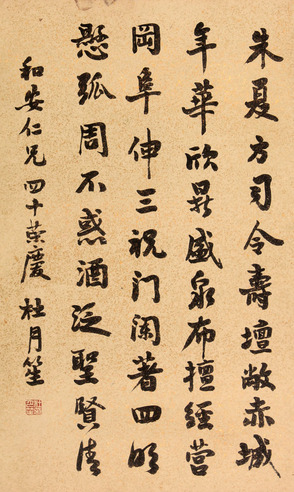 朱夏方司令壽壇敞赤城
年華欣最盛泉布擅經營
岡阜伸三祝门闌著四明
懸弧周不惑酒泛聖賢清
和安仁兄四十荣慶 杜月笙